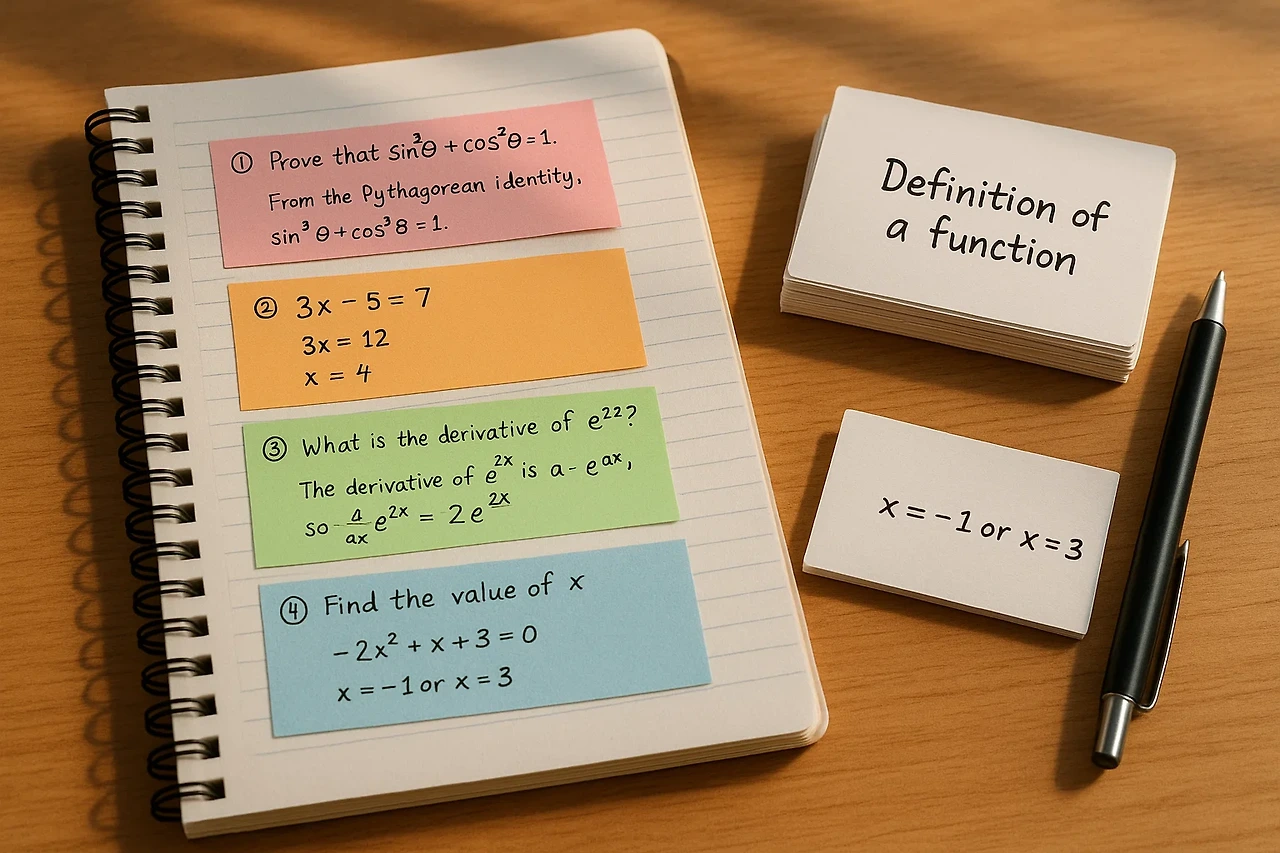 ① Prove that sin³θ + cos²θ = 1.
From the Pythagorean identity,
sin³ θ + cos³ 8 = 1.
② 3x − 5 = 7
3x = 12
x = 4
③ What is the derivative of e²²?
The derivative of e²ˣ is a - eᵃˣ,
so - a/ax e²ˣ = 2e²ˣ
④ Find the value of x
−2x² + x + 3 = 0
x = −1 or x = 3
Definition of
a function
x = −1 or x = 3